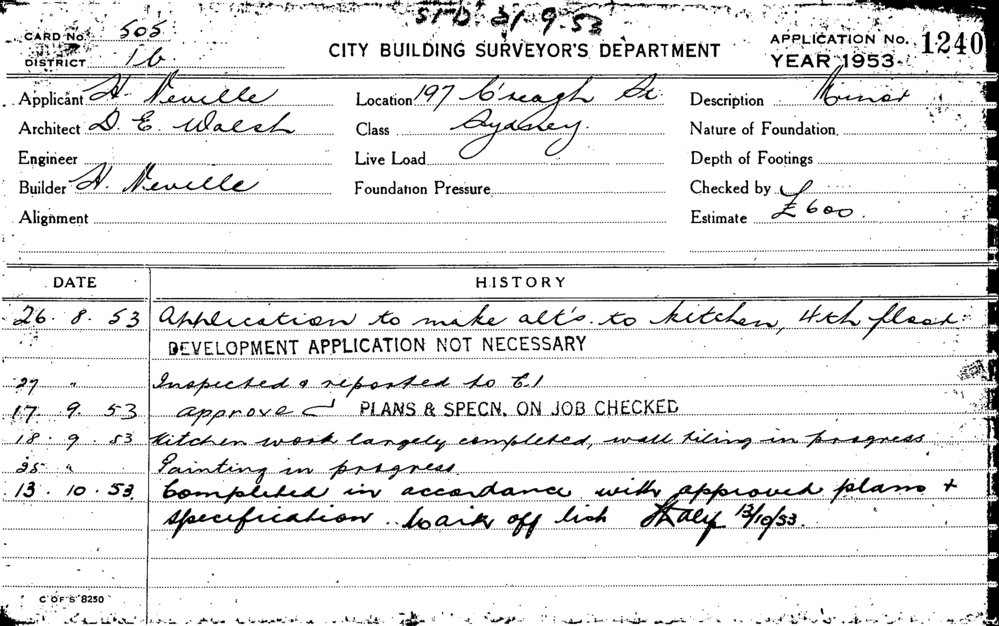 STD. 21.9.53
CARD No. 505
DISTRICT 16
CITY BUILDING SURVEYOR'S DEPARTMENT
APPLICATION No. 1240
YEAR 1953
Applicant H. Neville
Location 197 C'reagh St.
Description Minor
Architect D. E. Walsh
Class Sydney.
Nature of Foundation
Engineer
Live Load
Depth of Footings
Builder H. Neville
Foundation Pressure
Checked by
Alignment
Estimate £600.
DATE HISTORY
26. 8. 53 Application to make alt's. to kitchen, 4th floor
DEVELOPMENT APPLICATION NOT NECESSARY
27 " Inspected & reported to C.I
17. 9. 53 approved PLANS & SPECN. ON JOB CHECKED
18. 9. 53 Kitchen work largely completed, wall tiling in progress
25 " Painting in progress.
13. 10. 53. Completed in accordance with approved plans +
specification. off list 13/10/53.
C OF S 8250